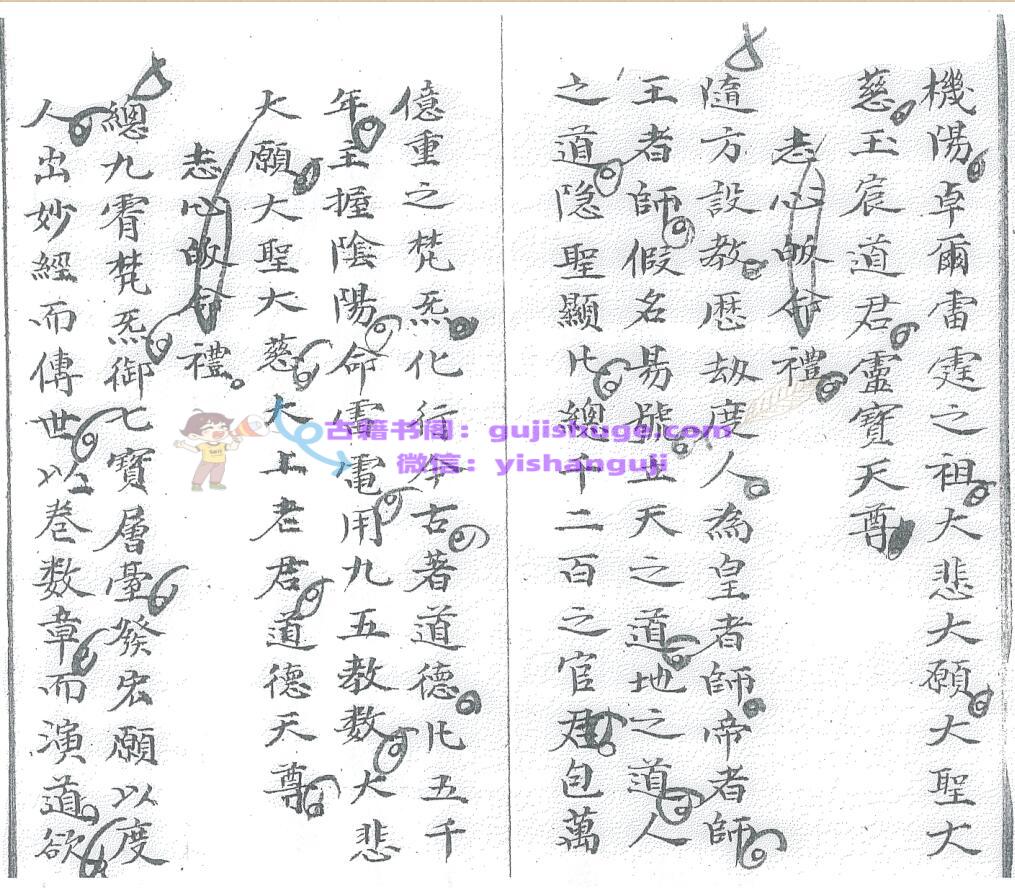 機陽卓爾雷霆之祖大悲大願大聖大
慈玉宸道君靈寶天尊
志心皈命禮
隨方設教歷劫度人為皇者師帝者師
王者師假名易號立天之道地之道人
之道隐聖顯凡總千二百之官君包萬
億重之梵炁化行今古著道德凡五千
年主握陰陽命雷電用九五教数大悲
大願大聖大慈太上老君道德天尊
志心皈命禮
總九霄梵炁御七寶層臺發宏願以度
人出妙經而傳世以卷数章而演道欲
古籍书阁：gujishuge.com
微信：yishanguji